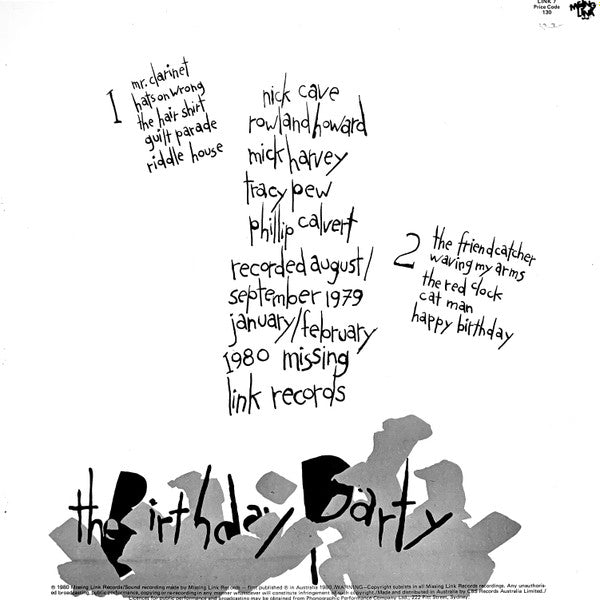 LINK 7
Price Code
130
MISSING
LINK
1
mr. clarinet
hats on wrong
the hair shirt
guilt parade
riddle house
nick cave
rowland howard
mick harvey
tracy pew
phillip calvert
recorded august/
september 1979
january/february
1980 missing
link records
2
the friendcatcher
waving my arms
the red clock
cat man
happy birthday
the Birthday Party
© 1980 Missing Link Records/Sound recording made by Missing Link Records — first published ℗ in Australia 1980. WARNING—Copyright subsists in all Missing Link Records. Any unauthoris-
ed broadcasting, public performance, copying or re-recording in any manner whatsoever will constitute infringement of such copyright./Made and distributed in Australia by CBS Records Australia Limited./
Licences for public performance and broadcasting may be obtained from Phonographic Performance Company Ltd., 222 Pitt Street, Sydney.